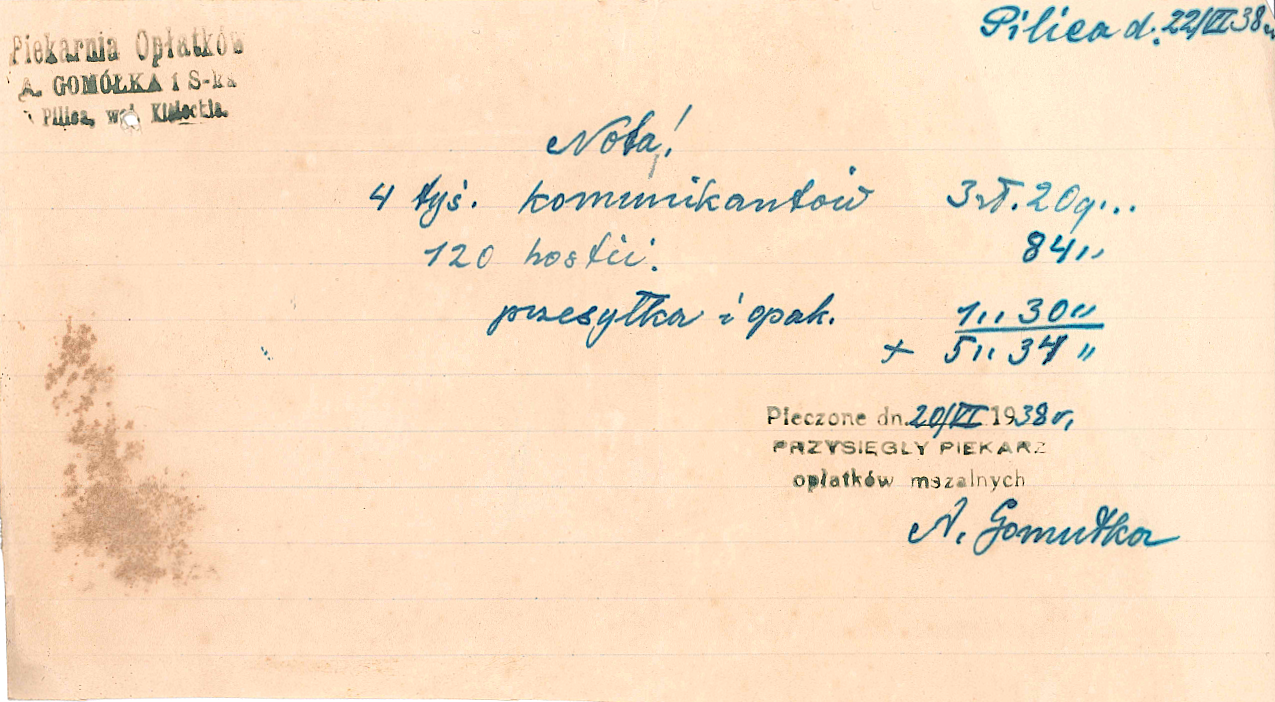 Piekarnia Opłatków
A. GOMÓŁKA i S-ka
Pilica, woj. Kieleckie.
Pilica d. 22/VI 38r.
Nota!
4 tyś. komunikantów 3 zł. 20 g...
120 hostii. 84 „
przesyłka i opak. 1 „ 30 „
+ 5 „ 34 „
Pieczone dn. 20/VI 1938 r,
PRZYSIĘGŁY PIEKARZ
opłatków mszalnych
A. Gomułka